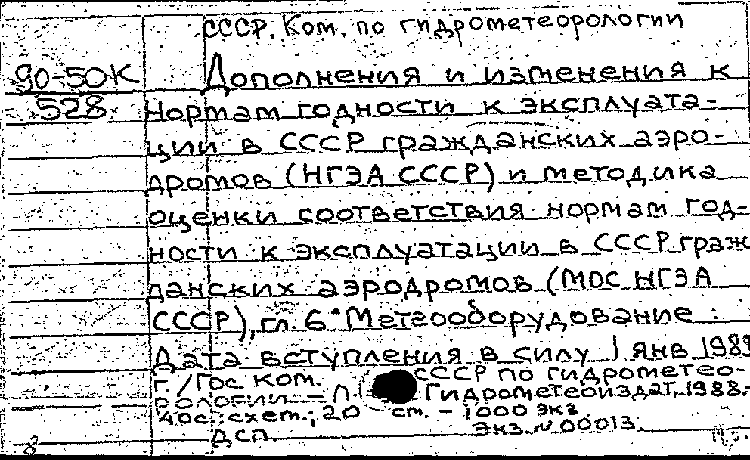 СССР. Ком. по гидрометеорологии
90-50К
528
Дополнения и изменения к
Нормам годности к эксплуата-
ции в СССР гражданских аэро-
дромов (НГЭА СССР) и методика
оценки соответствия нормам год-
ности к эксплуатации в СССР граж
данских аэродромов (МОС НГЭА
СССР), гл. 6 "Метеооборудование":
Дата вступления в силу 1 янв 1989
г. /Гос ком. СССР по гидрометео-
рологии. – Л. Гидрометеоиздат, 1988.
40с.: схем.; 20 см. – 1000 экз
ДСП. Экз. № 00013.
8